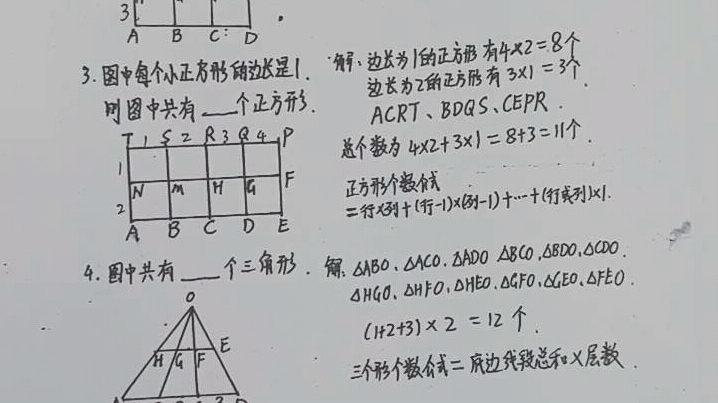 3
A B C D
3. 图中每个小正方形的边长是1.
则图中共有___个正方形.
T 1 S 2 R 3 Q 4 P
1
N M H G F
2
A B C D E
解: 边长为1的正方形有4×2=8个
边长为2的正方形有3×1=3个.
ACRT、BDQS、CEPR.
总个数为 4×2+3×1=8+3=11个.
正方形个数公式
=行×列+(行-1)×(列-1)+…+(行或列)×1.
4. 图中共有___个三角形.
O
H G F E
解. △ABO、△ACO、△ADO △BCO、△BDO、△CDO.
△HGO、△HFO、△HEO、△GFO、△GEO、△FEO.
(1+2+3)×2=12个.
三个形个数公式=底边线段总和×层数.